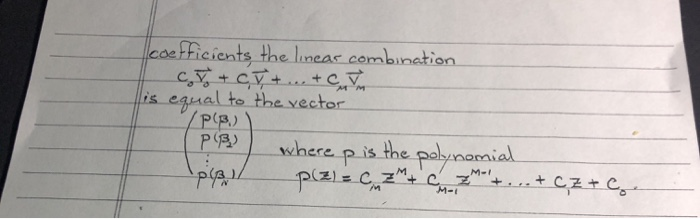 coefficients, the linear combination
c₀v⃗₀ + c₁v⃗₁ + ... + c_M v⃗_M
is equal to the vector
(p(β₁)
p(β₂)
⋮
p(β_N)) where p is the polynomial
p(z) = c_M z^M + c_{M-1} z^{M-1} + ... + c₁z + c₀.